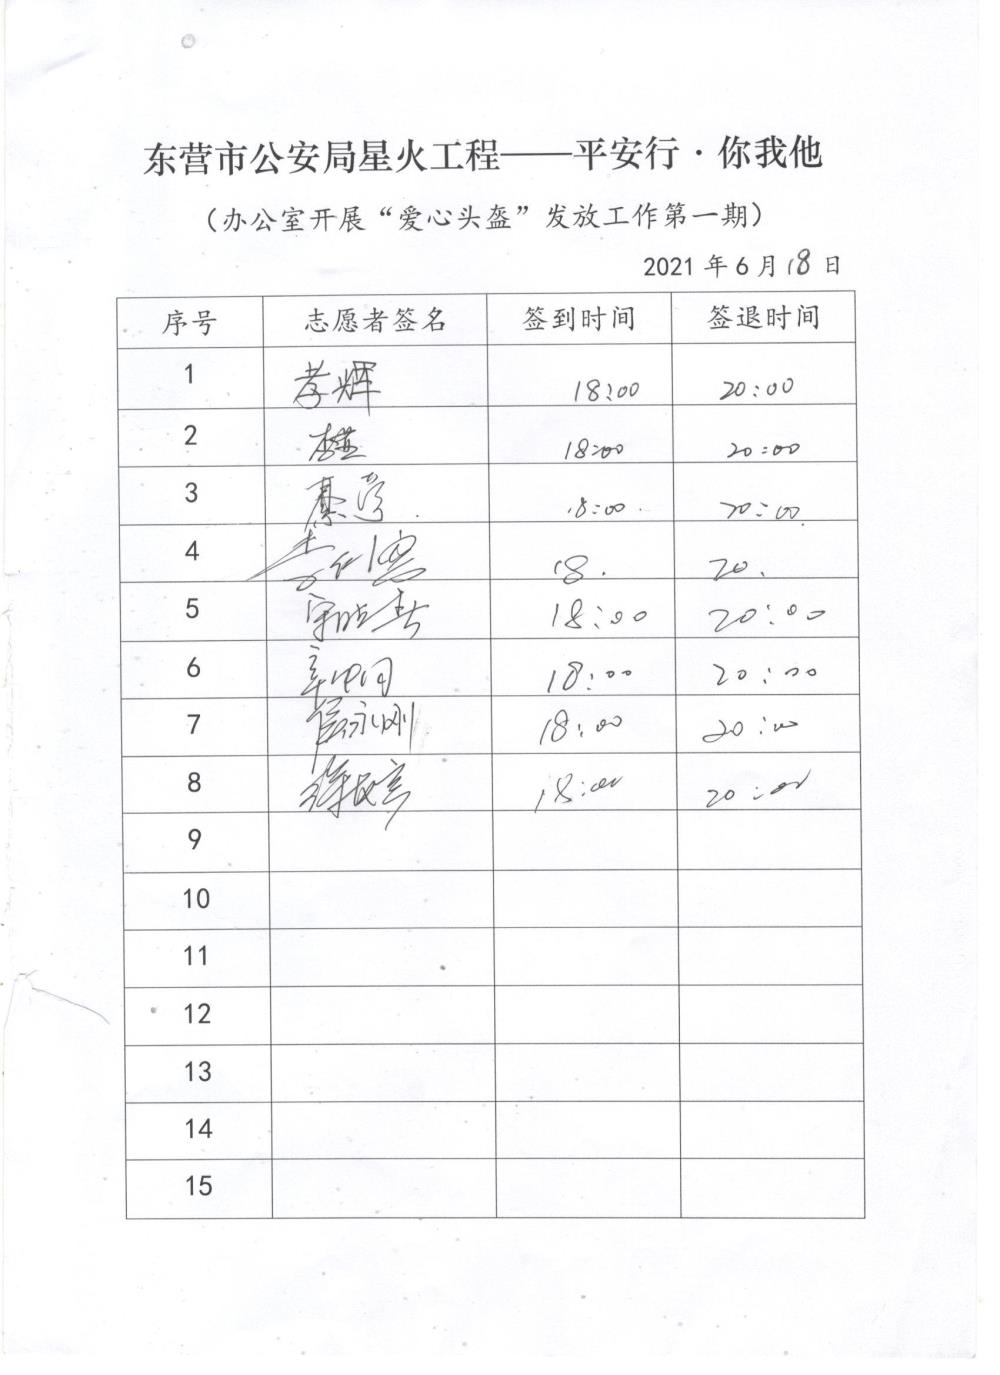 东营市公安局星火工程——平安行·你我他
（办公室开展“爱心头盔”发放工作第一期）
2021年6月18日
序号 志愿者签名 签到时间 签退时间
1 李辉 18:00 20:00
2 18:00 20:00
3 18:00 20:00
4 18. 20.
5 18:00 20:00
6 18:00 20:00
7 18:00 20:00
8 18:00 20:00
9
10
11
12
13
14
15